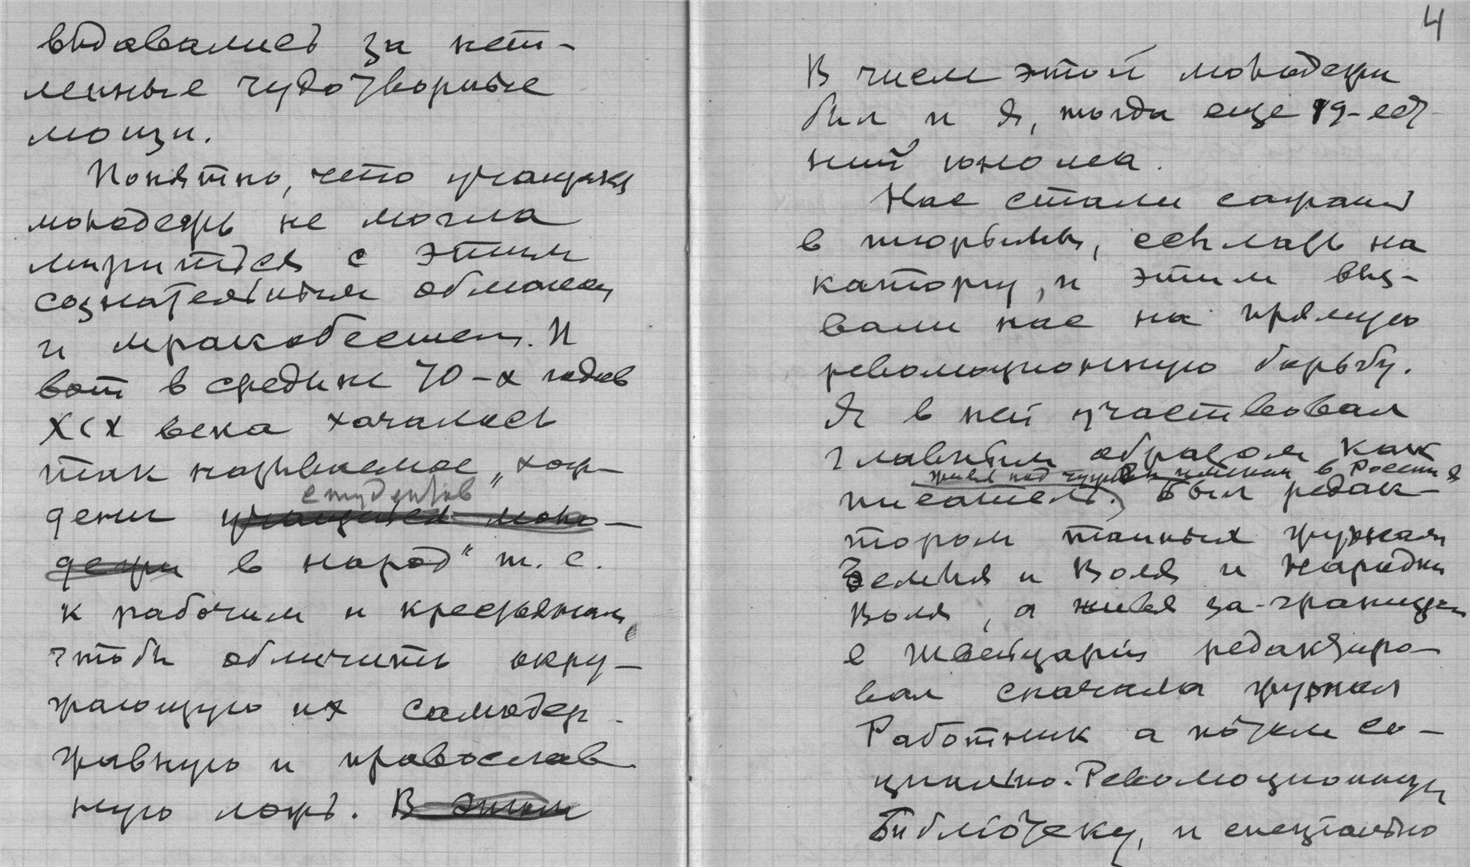 выдавались за нет-
ленные чудотворные
мощи.
Понятно, что учащаяся
молодежь не могла
мириться с этим
сознательным обманом
и мракобесием. И
вот в средине 70-х годов
XIX века началось
так называемое „хож-
дение студентов
учащейся моло-
дежи в народ“ т. е.
к рабочим и крестьянам,
чтобы обличить окру-
жающую их самодер-
жавную и православ
ную ложь. В этом
4
В числе этой молодежи
был и я, тогда еще 19-лет-
ний юноша.
Нас стали сажать
в тюрьмы, ссылать на
каторгу, и этим выз-
вали нас на прямую
революционную борьбу.
Я в ней участвовал
главным образом как
живя под чужим именем в России я
писатель. Был редак-
тором тайных журналов
Земля и Воля и Народная
Воля, а живя за-границей
в Швейцарии редактиро-
вал сначала журнал
Работник а потом Со-
циально-Революционную
Библіотеку, и специально